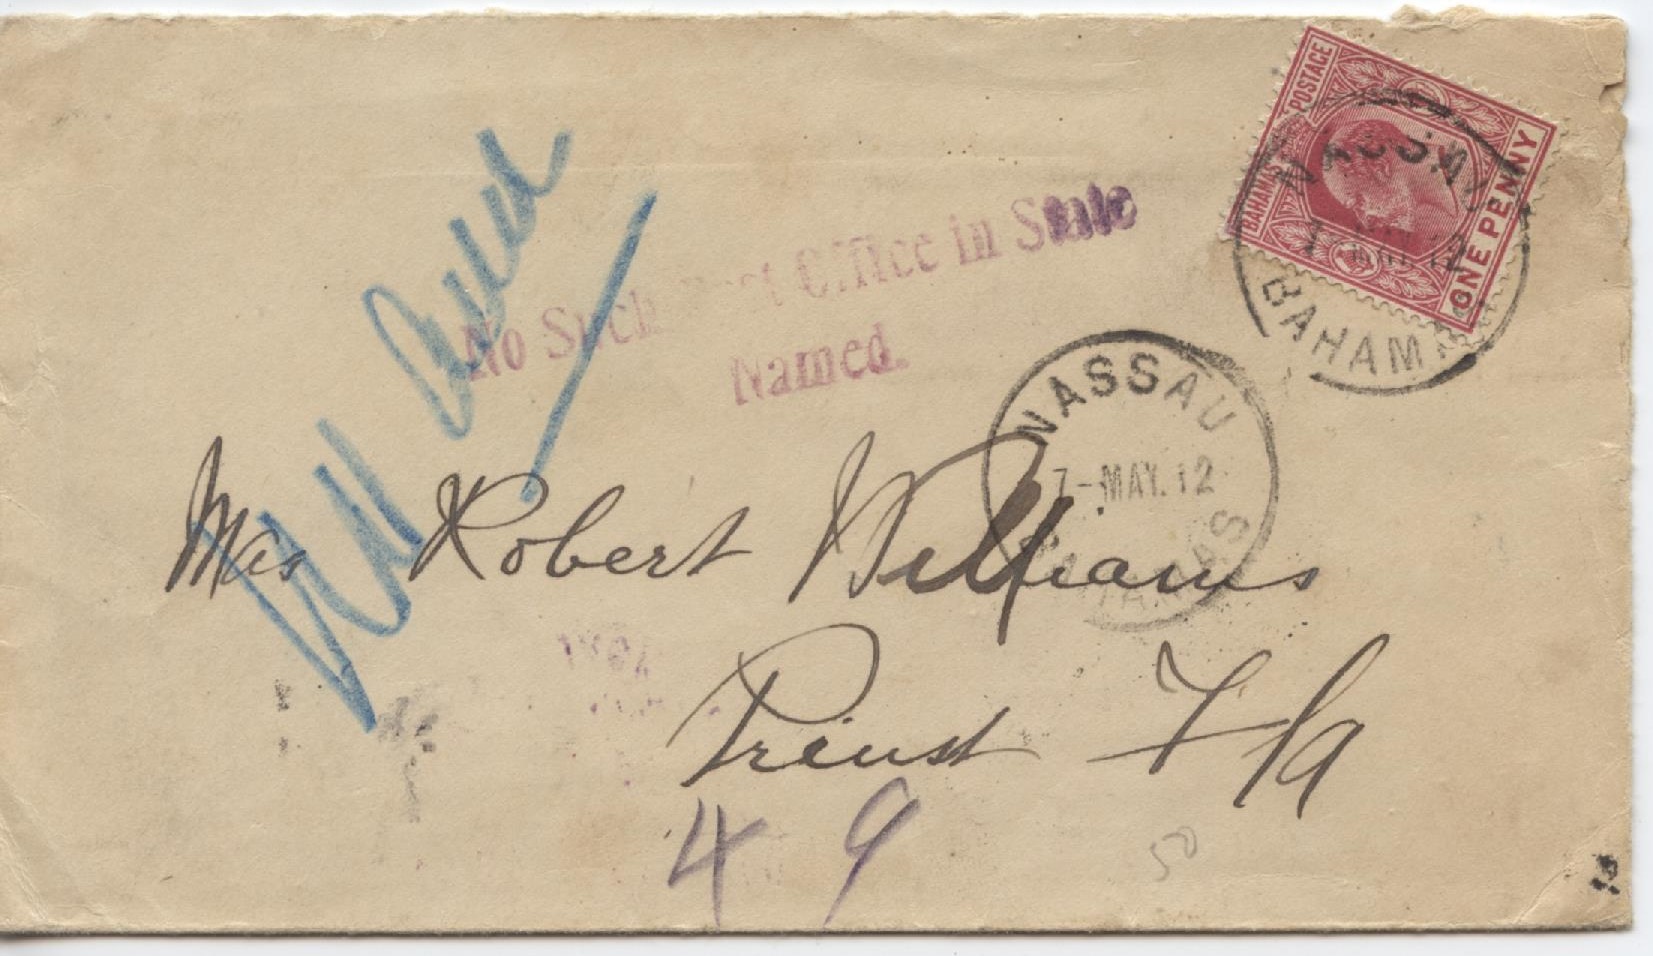 BAHAMAS POSTAGE
ONE PENNY
NASSAU
7-MAY.12
BAHAMAS
No Such Post Office in State
Named.
NASSAU
7-MAY.12
BAHAMAS
Mrs Robert Williams
Fla
4 9
50